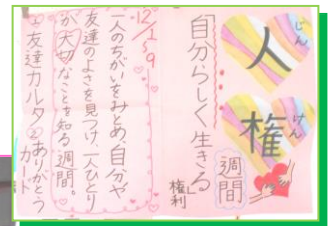 人権
じんけん
週間
「自分らしく生きる」
権利
12/1〜9
人のちがいをみとめ、自分や
友達のよさを見つけ、一人ひとり
が大切なことを知る週間。
①友達カルタ②ありがとう
カード